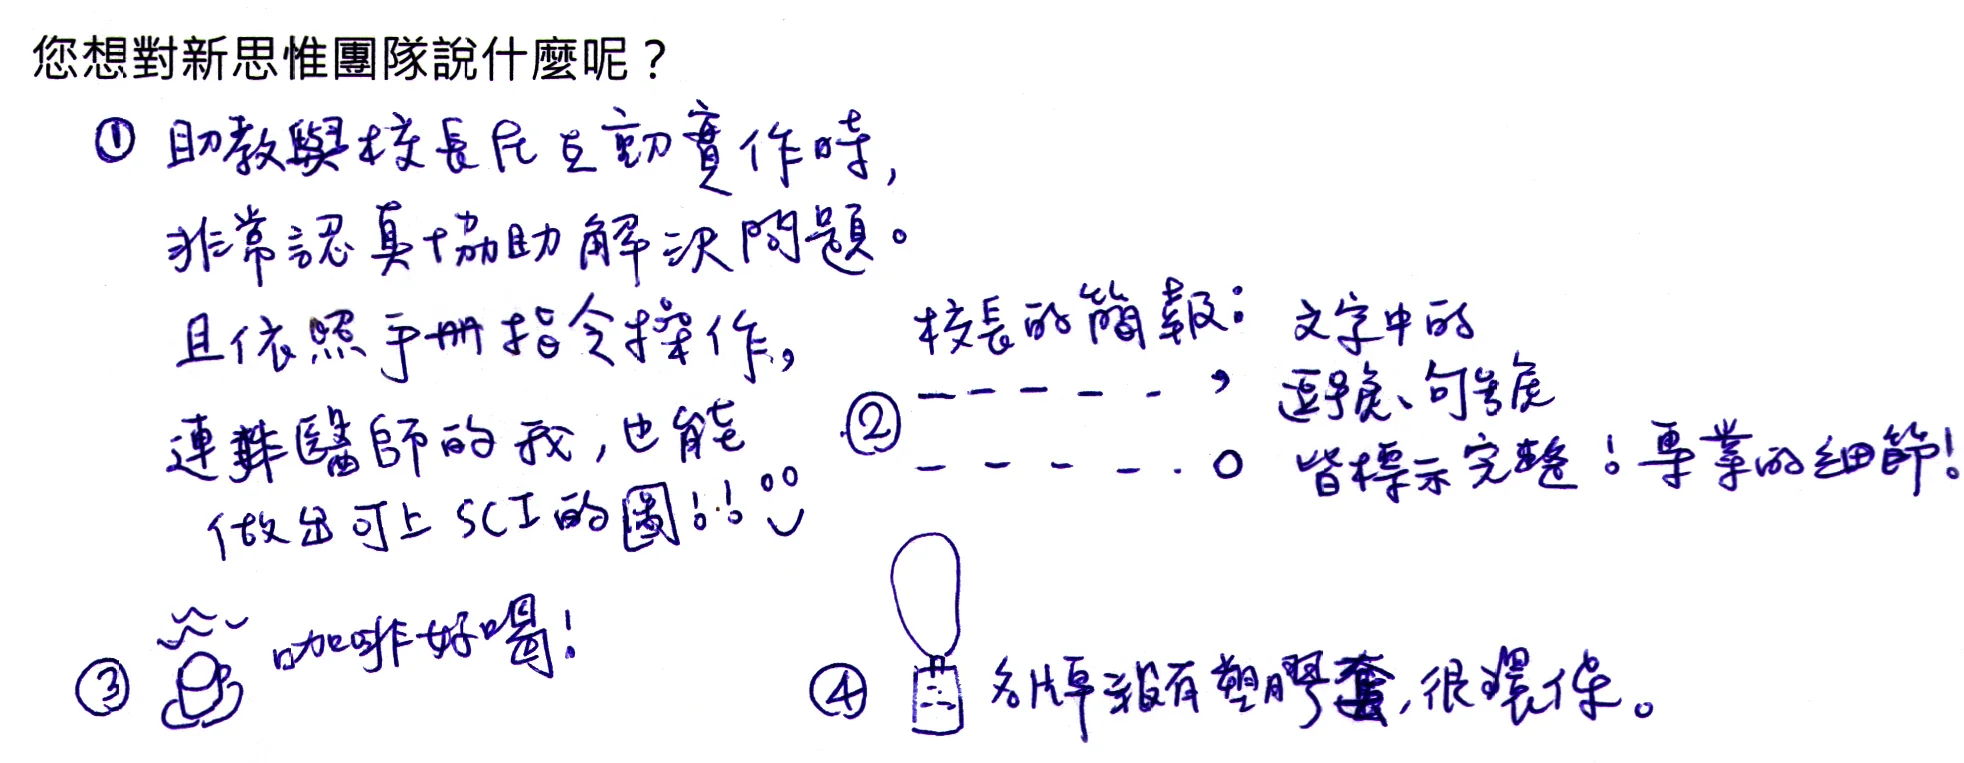 您想對新思惟團隊說什麼呢？
① 助教與校長在互動實作時，
非常認真協助解決問題。
且依照手冊指令操作，
連非醫師的我，也能
做出可上SCI的圖！！
② 校長的簡報：文字中的
－－－－－， 逗號、句號
－－－－－。 皆標示完整！專業的細節！
③ 咖啡好喝！
④ 名牌沒有塑膠套，很環保。